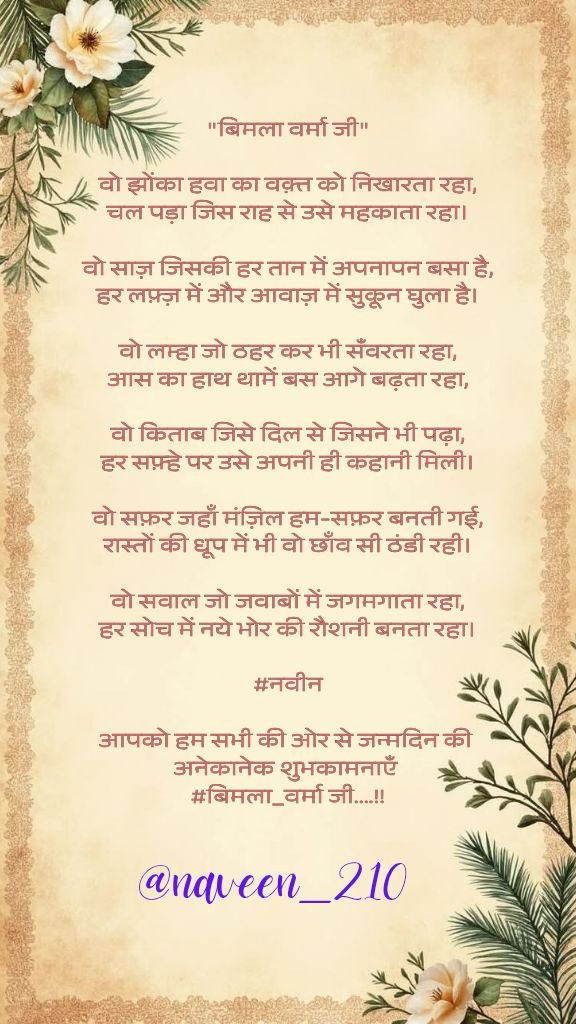 "बिमला वर्मा जी"
वो झोंका हवा का वक़्त को निखारता रहा,
चल पड़ा जिस राह से उसे महकाता रहा।
वो साज़ जिसकी हर तान में अपनापन बसा है,
हर लफ़्ज़ में और आवाज़ में सुकून घुला है।
वो लम्हा जो ठहर कर भी सँवरता रहा,
आस का हाथ थामें बस आगे बढ़ता रहा,
वो किताब जिसे दिल से जिसने भी पढ़ा,
हर सफ़्हे पर उसे अपनी ही कहानी मिली।
वो सफ़र जहाँ मंज़िल हम-सफ़र बनती गई,
रास्तों की धूप में भी वो छाँव सी ठंडी रही।
वो सवाल जो जवाबों में जगमगाता रहा,
हर सोच में नये भोर की रौशनी बनता रहा।
#नवीन
आपको हम सभी की ओर से जन्मदिन की
अनेकानेक शुभकामनाएँ
#बिमला_वर्मा जी....!!
@naveen_210